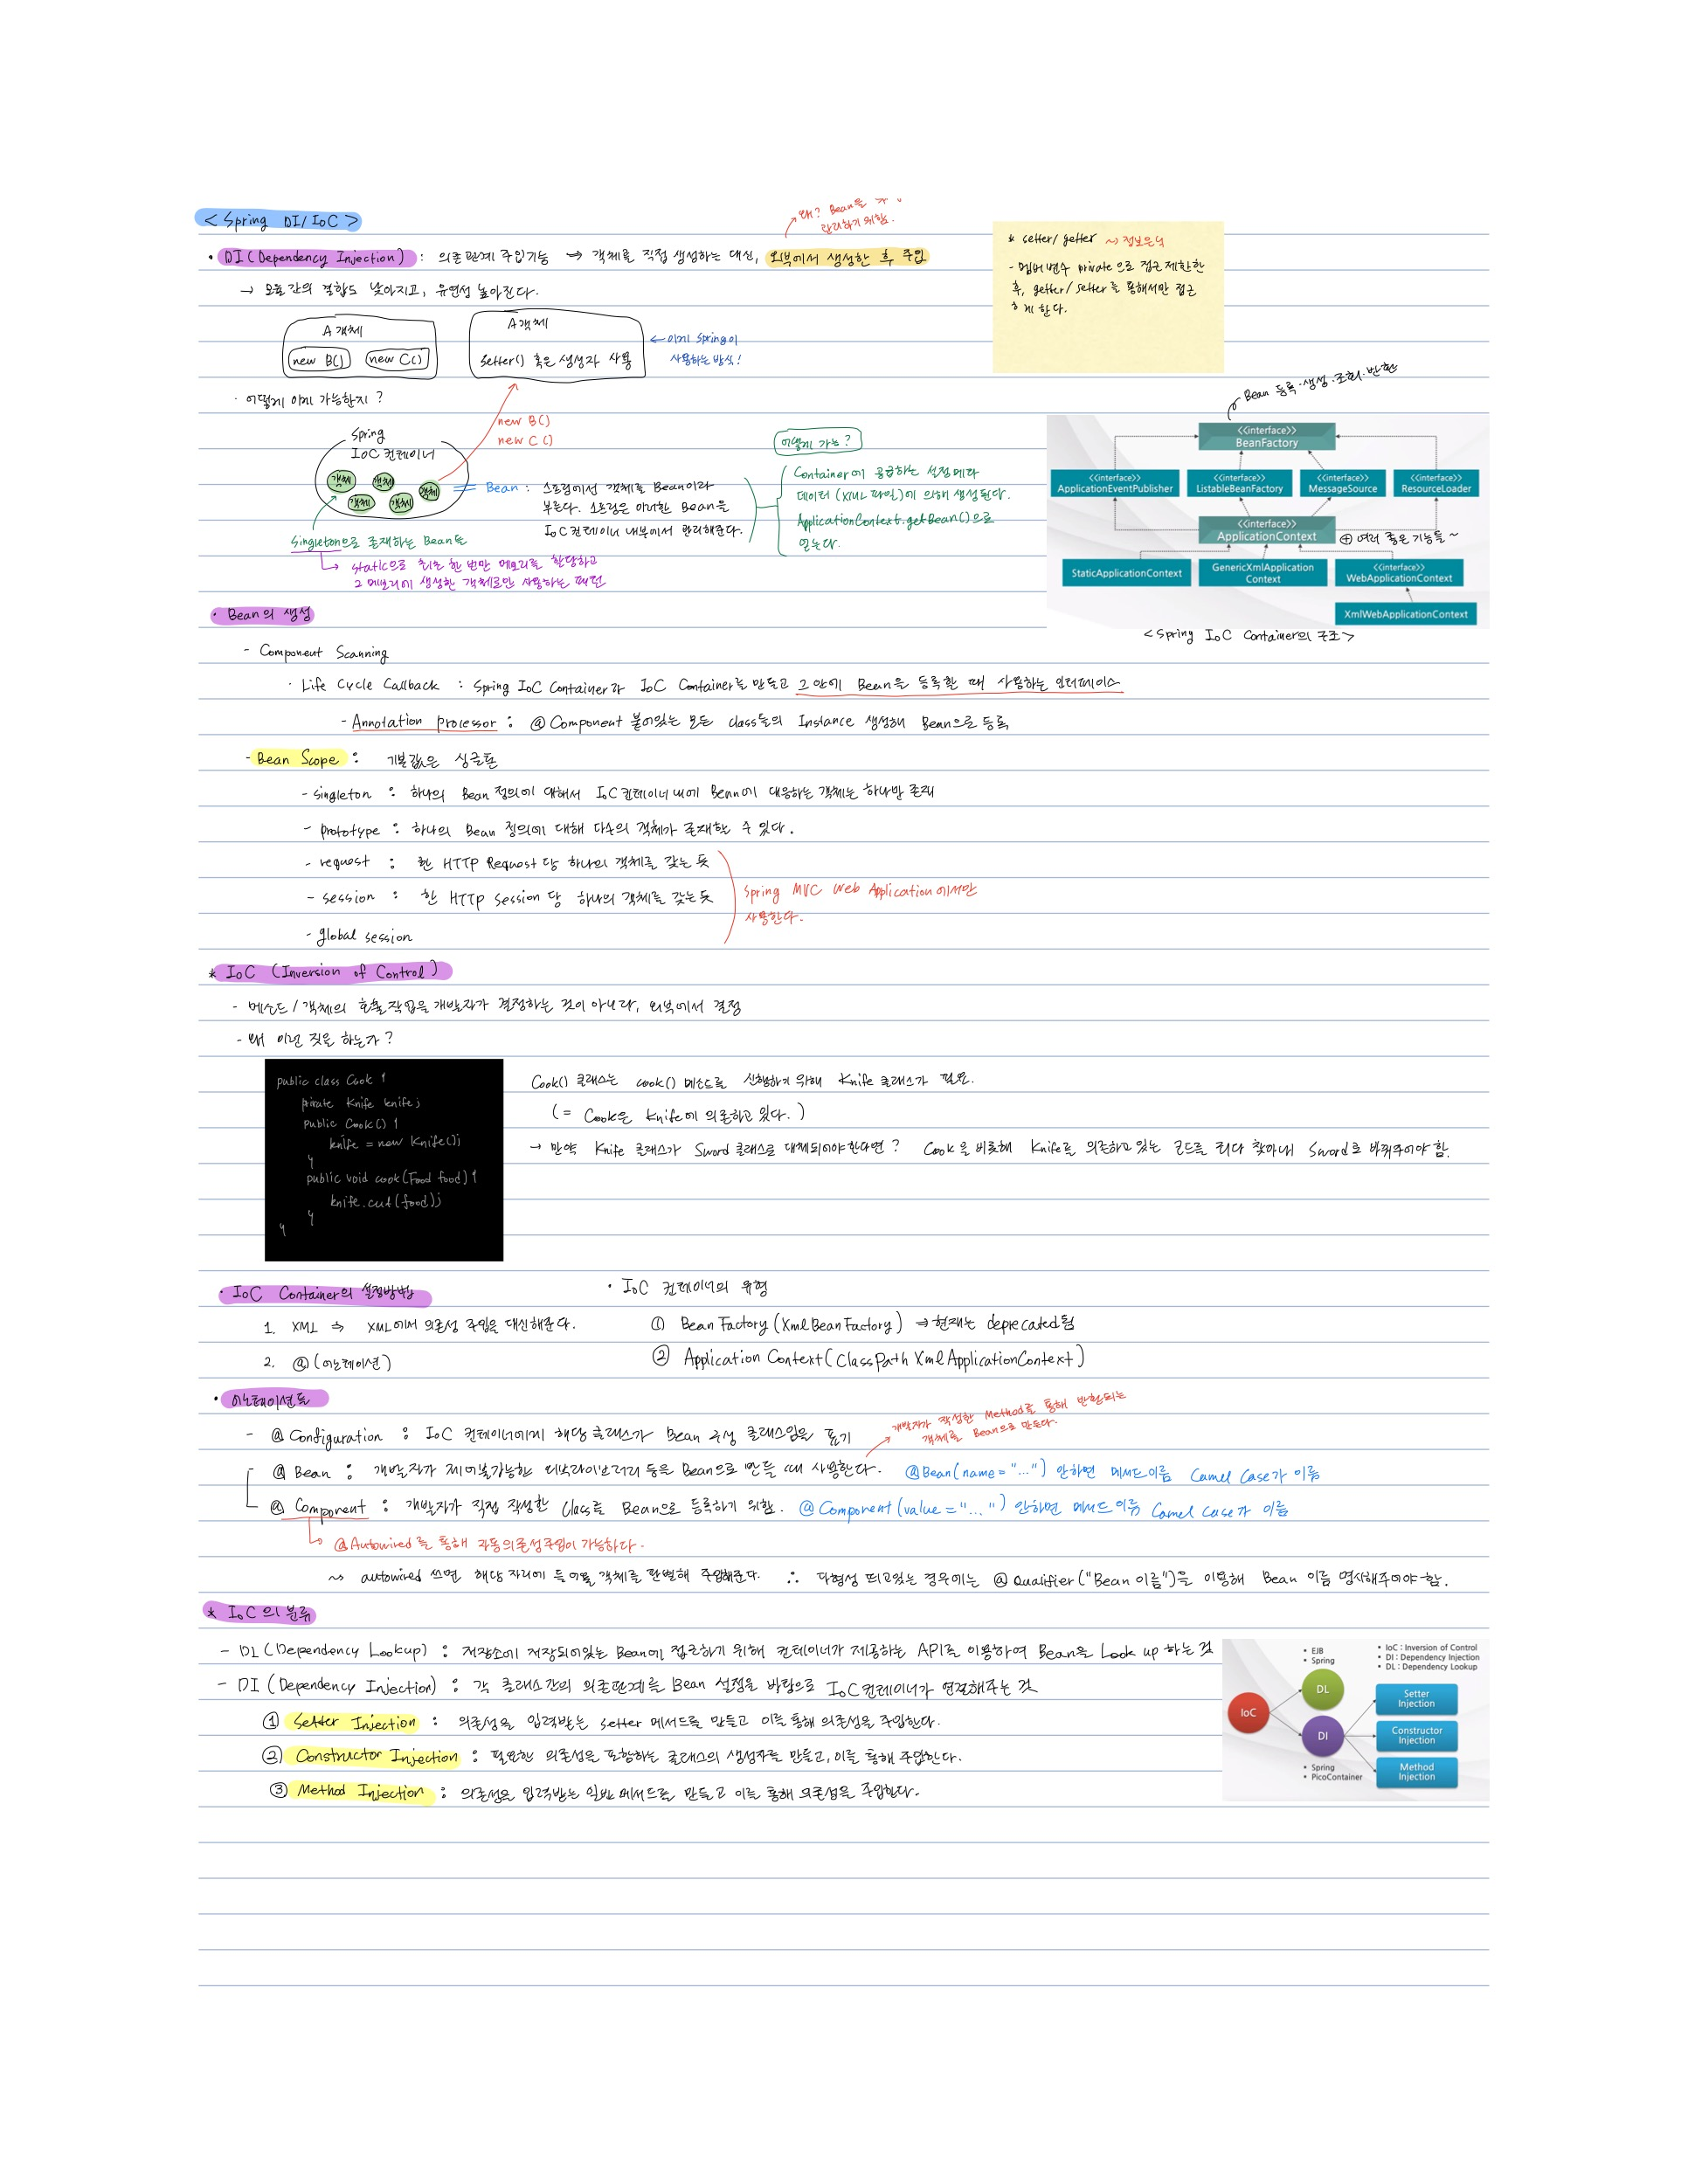 < Spring DI/IoC >
왜? Bean을
관리하기 위함.
• DI (Dependency Injection) : 의존관계 주입기능 ⇒ 객체를 직접 생성하는 대신, 외부에서 생성한 후 주입
→ 모듈간의 결합도 낮아지고, 유연성 높아진다.
* setter/getter ~> 정보은닉
- 멤버변수 private으로 접근 제한한
후, getter/setter를 통해서만 접근
하게 한다.
A 객체
new B() new C()
A 객체
setter() 혹은 생성자 사용
← 이게 Spring이
사용하는 방식!
· 어떻게 이게 가능한지?
new B()
new C()
Spring
IoC 컨테이너
객체 객체 객체
객체 객체
Bean : 스프링에서 객체를 Bean이라
부른다. 스프링은 이러한 Bean을
IoC 컨테이너 내부에서 관리해준다.
어떻게 가능?
Container에 공급하는 설정 메타
데이터 (XML 파일)에 의해 생성된다.
ApplicationContext.getBean()으로
얻는다.
Singleton으로 존재하는 Bean들
↳ static으로 최초 한 번만 메모리를 할당하고
그 메모리에 생성한 객체로만 사용하는 패턴
Bean 등록·생성·조회·반환
<<interface>>
BeanFactory
<<interface>>
ApplicationEventPublisher
<<interface>>
ListableBeanFactory
<<interface>>
MessageSource
<<interface>>
ResourceLoader
<<interface>>
ApplicationContext
⊕ 여러 좋은 기능들 ~
StaticApplicationContext
GenericXmlApplication
Context
<<interface>>
WebApplicationContext
XmlWebApplicationContext
< Spring IoC Container의 구조 >
• Bean의 생성
- Component Scanning
· Life Cycle Callback : Spring IoC Container과 IoC Container를 만들고 그 안에 Bean을 등록할 때 사용하는 인터페이스
- Annotation processor : @Component 붙어있는 모든 class들의 Instance 생성해 Bean으로 등록
- Bean Scope : 기본값은 싱글톤
- singleton : 하나의 Bean 정의에 대해서 IoC 컨테이너 내에 Bean에 대응하는 객체는 하나만 존재
- prototype : 하나의 Bean 정의에 대해 다수의 객체가 존재할 수 있다.
- request : 한 HTTP Request 당 하나의 객체를 갖는 듯
- session : 한 HTTP Session 당 하나의 객체를 갖는 듯
- global session
Spring MVC Web Application에서만
사용한다.
* IoC (Inversion of Control)
- 메소드/객체의 호출작업을 개발자가 결정하는 것이 아니라, 외부에서 결정
- 왜 이런 짓을 하는가?
public class Cook {
private Knife knife;
public Cook() {
knife = new Knife();
}
public void cook(Food food) {
knife.cut(food);
}
}
Cook() 클래스는 cook() 메소드를 실행하기 위해 Knife 클래스가 필요.
(= Cook은 Knife에 의존하고 있다.)
→ 만약 Knife 클래스가 Sword 클래스로 대체되어야한다면? Cook을 비롯해 Knife를 의존하고 있는 코드를 죄다 찾아내 Sword로 바꿔주어야 함.
• IoC Container의 설정방법
1. XML ⇒ XML에서 의존성 주입을 대신해준다.
2. @ (어노테이션)
• IoC 컨테이너의 유형
① Bean Factory (XmlBeanFactory) ⇒ 현재는 deprecated됨
② Application Context (ClassPathXmlApplicationContext)
• 어노테이션들
개발자가 작성한 Method를 통해 반환되는
객체를 Bean으로 만든다.
- @Configuration : IoC 컨테이너에게 해당 클래스가 Bean 구성 클래스임을 표기
@Bean : 개발자가 제어불가능한 외부라이브러리 등을 Bean으로 만들 때 사용한다. @Bean(name="...") 안하면 메서드이름 Camel Case가 이름
@Component : 개발자가 직접 작성한 Class를 Bean으로 등록하기 위함. @Component(value="...") 안하면 메서드 이름 Camel Case가 이름
↳ @Autowired를 통해 자동의존성주입이 가능하다.
~> autowired 쓰면 해당 자리에 들어올 객체를 판별해 주입해준다. ∴ 다형성 띄고있는 경우에는 @Qualifier("Bean 이름")을 이용해 Bean 이름 명시해주어야 함.
* IoC의 분류
- DL (Dependency Lookup) : 저장소에 저장되어있는 Bean에 접근하기 위해 컨테이너가 제공하는 API를 이용하여 Bean을 Look up 하는 것
- DI (Dependency Injection) : 각 클래스간의 의존관계를 Bean 설정을 바탕으로 IoC 컨테이너가 연결해주는 것
① Setter Injection : 의존성을 입력받는 setter 메서드를 만들고 이를 통해 의존성을 주입한다.
② Constructor Injection : 필요한 의존성을 포함하는 클래스의 생성자를 만들고, 이를 통해 주입한다.
③ Method Injection : 의존성을 입력받는 일반 메서드를 만들고 이를 통해 의존성을 주입한다.
• EJB
• Spring
• IoC : Inversion of Control
• DI : Dependency Injection
• DL : Dependency Lookup
IoC
DL
DI
Setter
Injection
Constructor
Injection
Method
Injection
• Spring
• PicoContainer